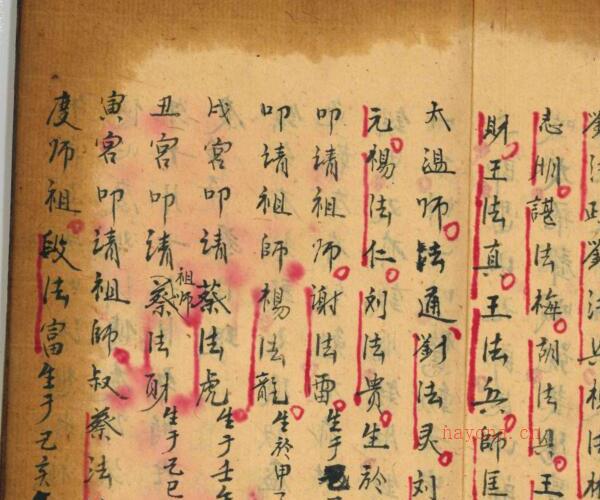 劉法
志明諶法梅胡法具王
財王法真王法兵師匡
太温師法通劉法灵刘
元楊法仁刘法贵生於
叩請祖师謝法雷生于
叩請祖師楊法龍生於甲子
戌宮叩请蔡法虎生于壬午
丑宮叩請祖师蔡法财生于己巳
寅宫叩请祖師叔蔡法
度师祖段法富生于己亥年
nayong.cn